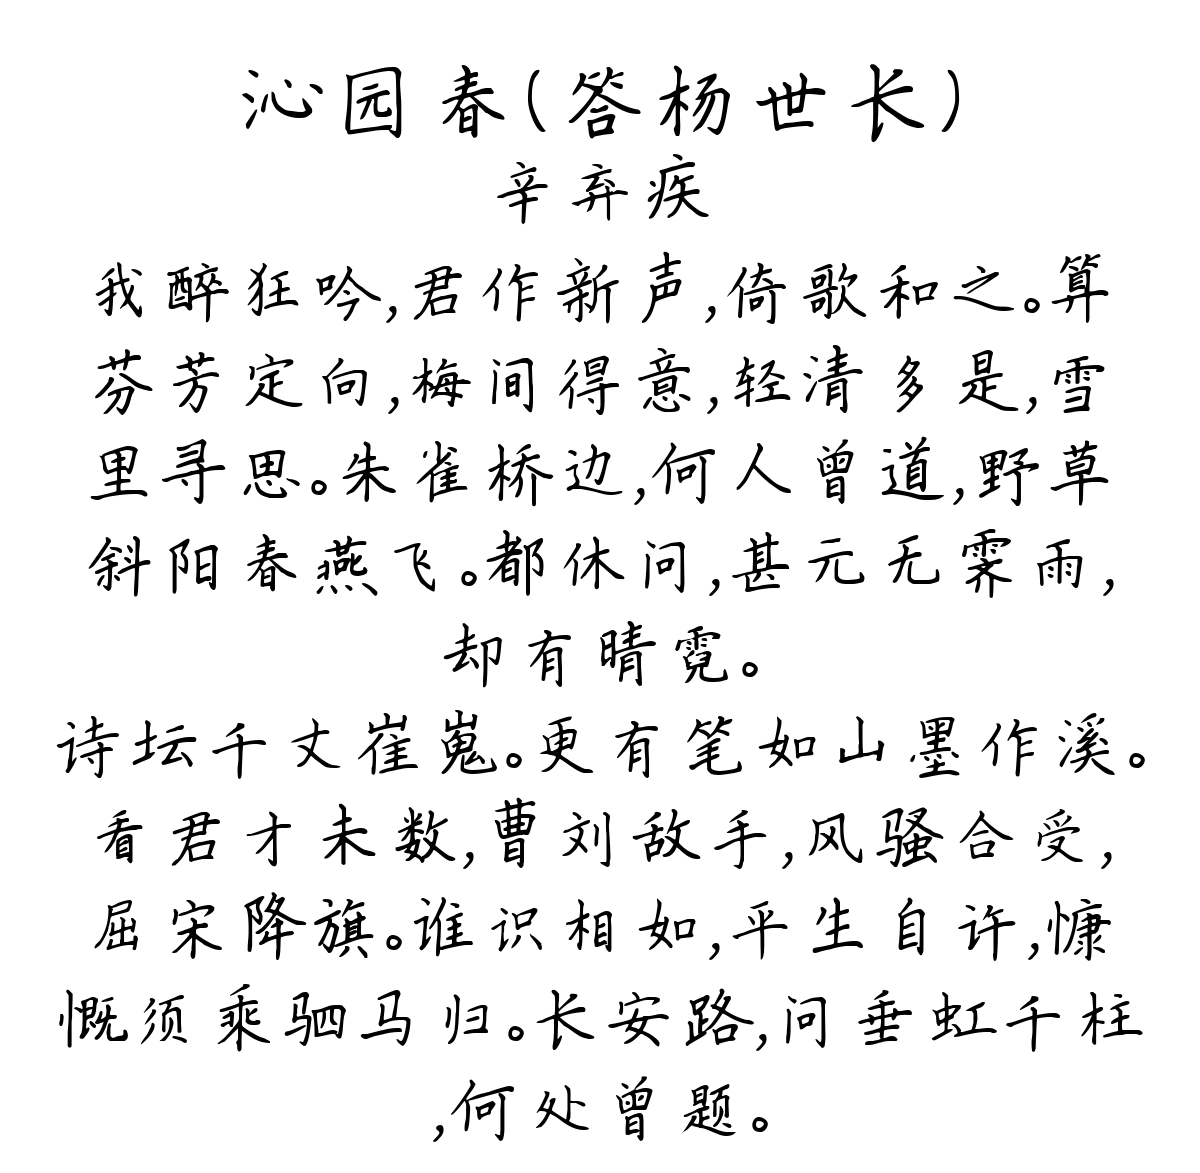 沁园春(答杨世长)
辛弃疾
我醉狂吟,君作新声,倚歌和之。算
芬芳定向,梅间得意,轻清多是,雪
里寻思。朱雀桥边,何人曾道,野草
斜阳春燕飞。都休问,甚元无霁雨,
却有晴霓。
诗坛千丈崔嵬。更有笔如山墨作溪。
看君才未数,曹刘敌手,风骚合受,
屈宋降旗。谁识相如,平生自许,慷
慨须乘驷马归。长安路,问垂虹千柱
,何处曾题。